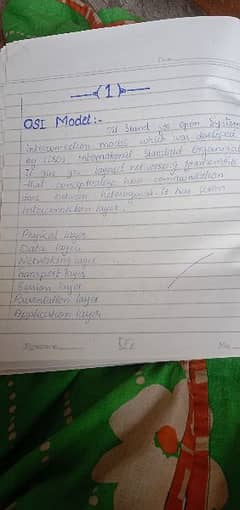 Date
(1)
OSI Model:- It stand for open system
interconnection model which was developed
by (ISO) international standard organizat
It give for layered networking framework
that conceptualize how communication
done between heterogenous. It has seven
interconnection layer.
Physical layer
Data layer
Networking layer
Transport layer
Session layer
Presentation layer
Application layer